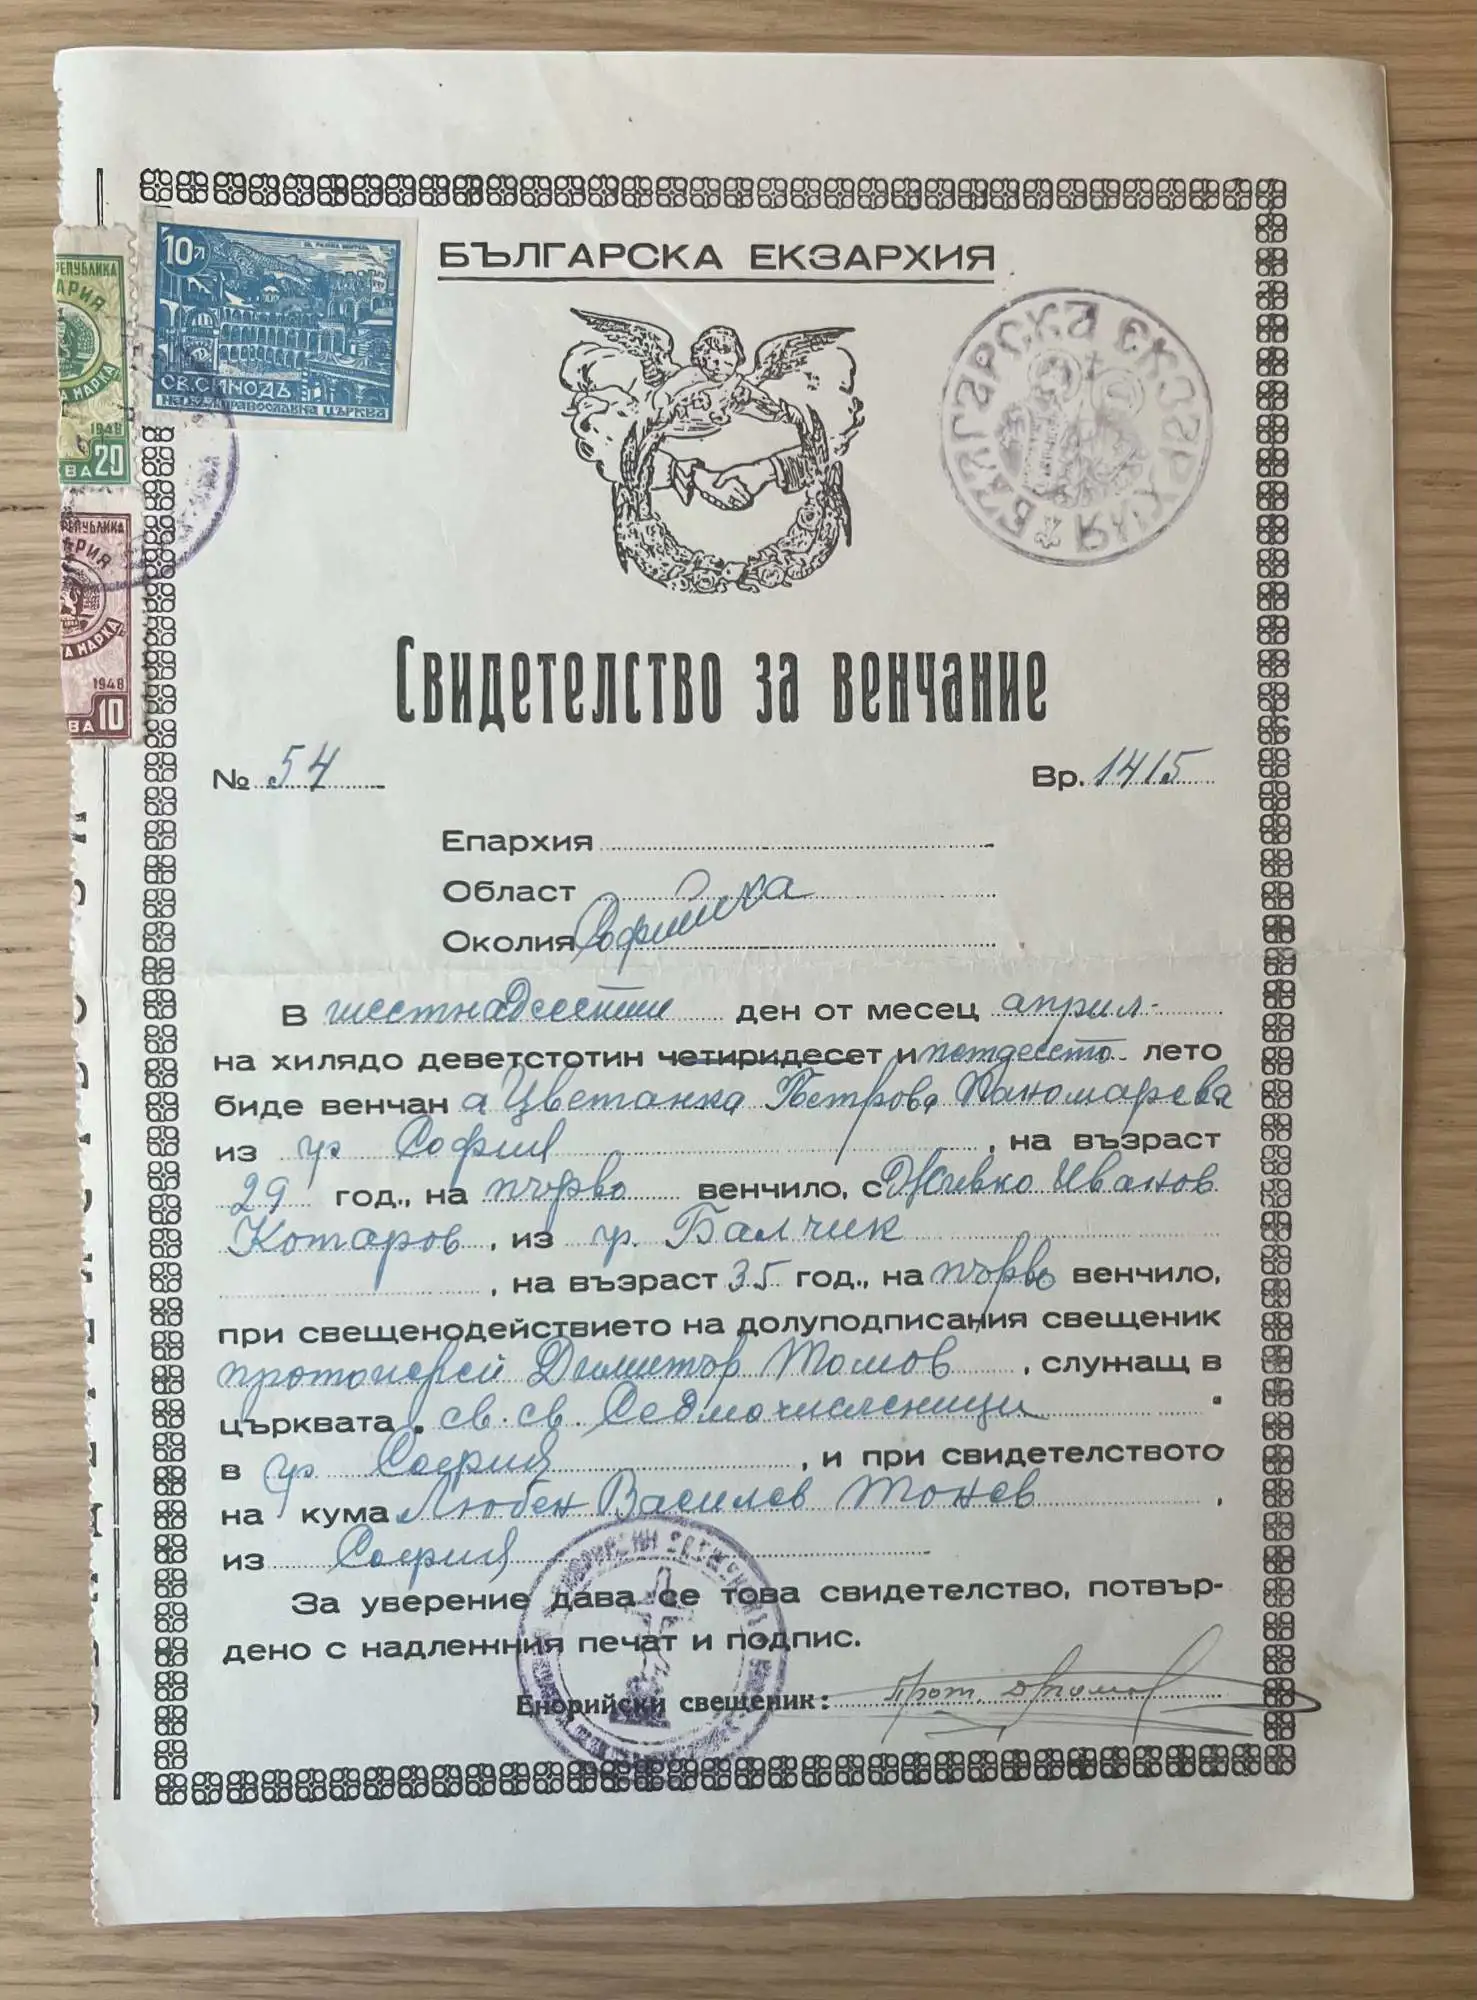 БЪЛГАРСКА ЕКЗАРХИЯ
10 л
СВ. СИНОДЪ
НА БЪЛ. ПРАВОСЛАВНА ЦЪРКВА
РЕПУБЛИКА
АРИЯ
А МАРКА
1948
ВА 20
РЕПУБЛИКА
АРИЯ
А МАРКА
1948
ВА 10
БЪЛГАРСКА ЕКЗАРХИЯ
Свидетелство за венчание
№ 54 Вр. 1415
Епархия
Област
Околия Софийска
В шестнадесети ден от месец април
на хилядо деветстотин четиридесет и петдесето лето
биде венчан а Цветанка Петрова Паномарева
из гр. София, на възраст
29 год., на първо венчило, с Живко Иванов
Котаров, из гр. Балчик
, на възраст 35 год., на първо венчило,
при свещенодействието на долуподписания свещеник
протоиерей Димитър Томов, служащ в
църквата „св. св. Седмочисленици“
в гр. София, и при свидетелството
на кума Любен Василев Тонев,
из София
За уверение дава се това свидетелство, потвър-
дено с надлежния печат и подпис.
Енорийски свещеник: прот. Д Томов